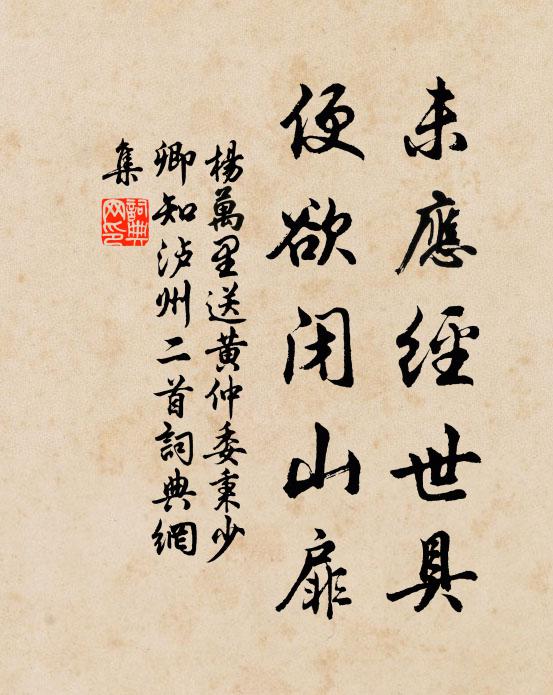 未應經世具
便欲閉山扉
楊萬里送黄仲委秉少
卿知泸州二首詞典網
集
詞典
网印